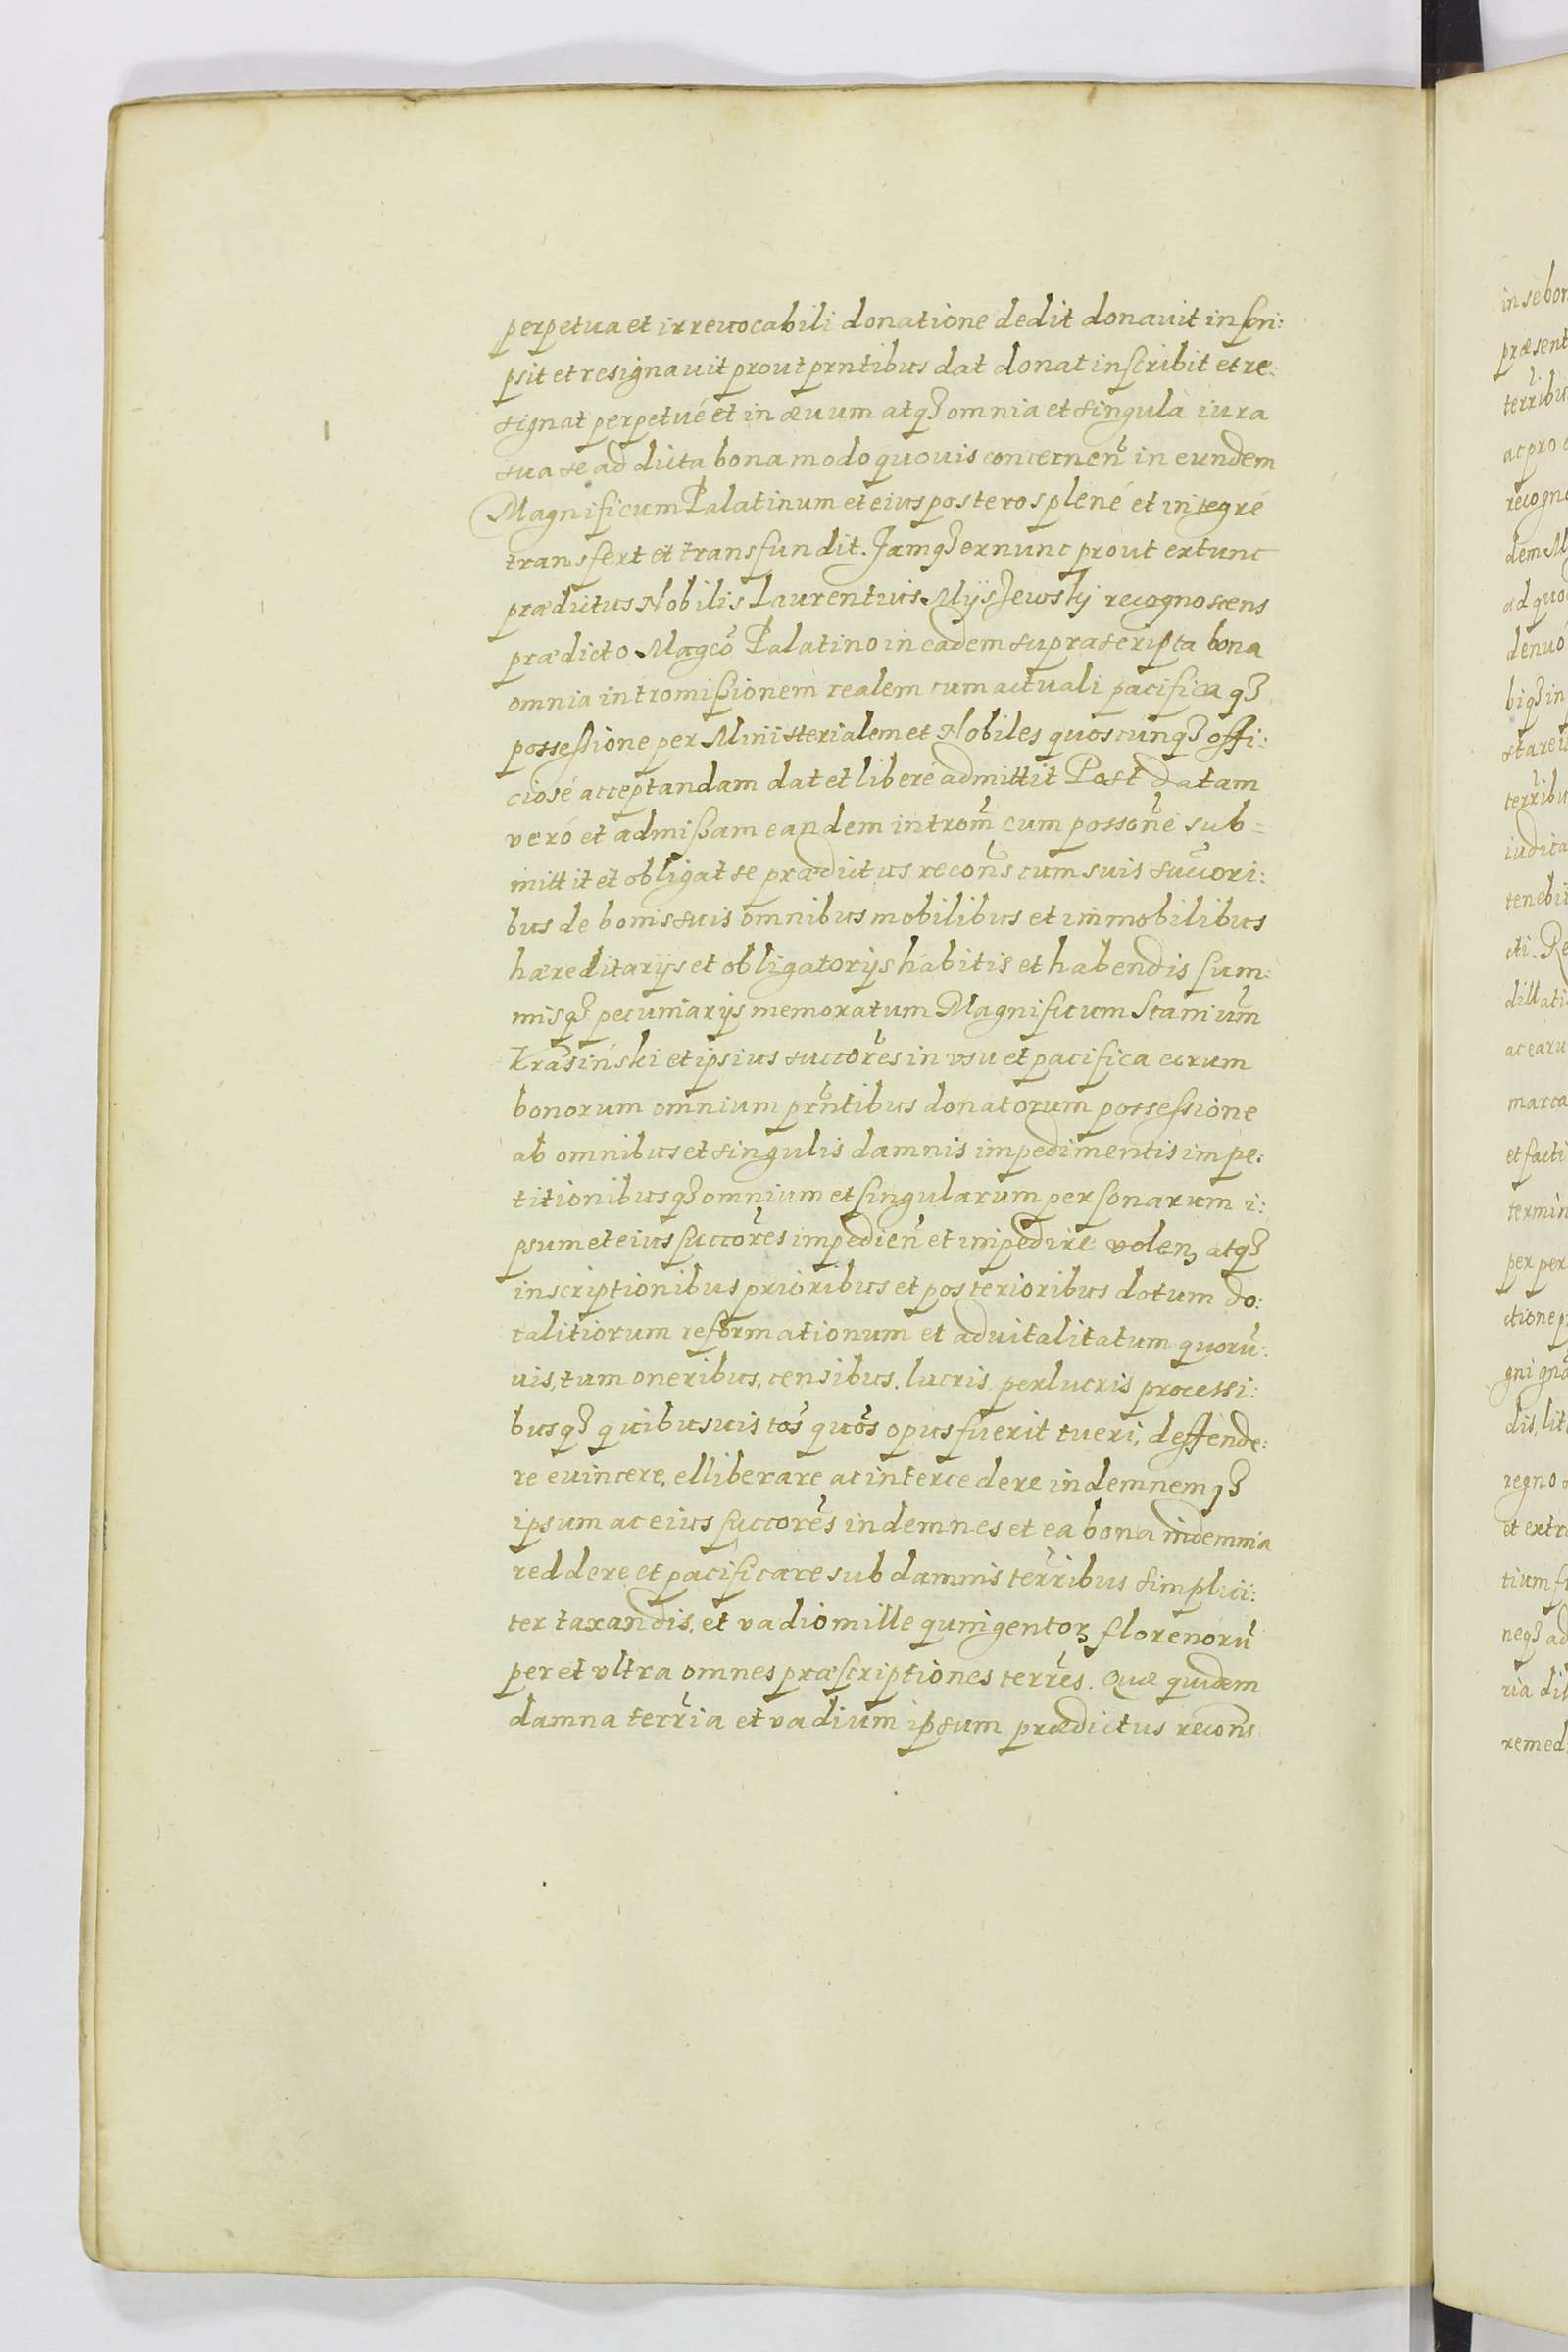 perpetua et irreuocabili donatione dedit donauit inscri:
psit et resignauit prout prntibus dat donat inscribit et re:
signat perpetué et in æuum atq3 omnia et singula iura
sua se ad dicta bona modo quouis concernen̄ in eundem
Magnificum Palatinum et eius posteros plené et integré
transfert et transfundit. Jamq3 exnunc prout extunc
prædictus Nobilis Laurentius recognoscens
prædicto Magcō Palatino in eadem suprascripta bona
omnia intromißionem realem cum actuali pacificaq3
possessione per Ministerialem et Nobiles quoscunq3 offi:
ciosé acceptandam dat et liberé admittit Post datam
veró et admißam eandem introm̄ cum posson̄e sub=
mittit et obligat se prædictus recon̄s cum suis succori:
bus de bonis suis omnibus mobilibus et immobilibus
hæreditarijs et obligatorijs habitis et habendis sum:
misq3 pecuniarijs memoratum Magnificum Stanium̄
Krasiński et ipsius succores̄ in vsu et pacifica eorum
bonorum omnium prn̄tibus donatorum possessione
ab omnibus et singulis damnis impedimentis impe:
titionibusq3 omnium et singularum personarum i:
psum et eius succores̄ impedien̄ et impedire volenꝫ atq3
inscriptionibus prioribus et posterioribus dotum do:
talitiorum reformationum et aduitalitatum quorū:
uis, tum oneribus, censibus, lucris perlucris processi:
busq3 quibusuis tos̄ quos̄ opus fuerit tueri, deffende:
re euincere, elliberare ac intercedere indemnemq3
ipsum ac eius succores̄ indemnes et ea bona indemnia
reddere et pacificare sub damnis terr̄ibus simplici:
ter taxandis, et vadio mille quingentoꝝ florenorū
per et vltra omnes præscriptiones terr̄es. Quæ quidem
damna terr̄ia et vadium ipsum prædictus recon̄s
in se bon
præsent
terr̄ibu
ac pro
recogno
dem M
ad quo
denuó
biq3 in
stare
terr̄ibu
iudica
tenebit
cti. Re
dillati
ac earu
marca
et facti
termin
per per
ctione p
gni gn
dis, lit
regno
et extra
tium
neq3 ad
ria dil
remed